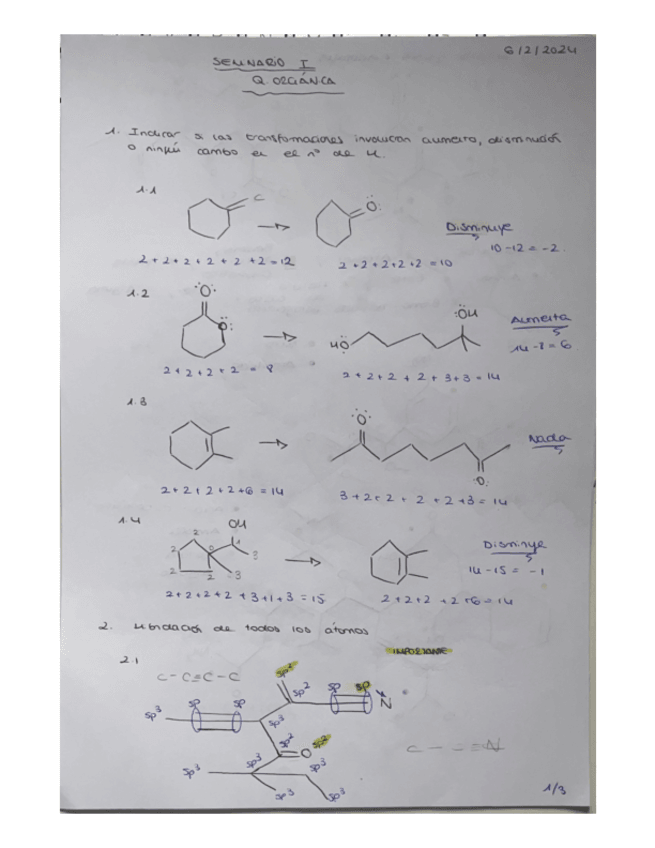 6/2/2024
SEMINARIO I
Q. ORGÁNICA
1. Indicar si las transformaciones involucran aumento, disminución
o ningún cambio en el nº de H.
1.1
C
O
Disminuye
10-12 = -2
2+2+2+2+2+2=12
2+2+2+2+2=10
1.2
O
O
OH
HO
Aumenta
14-8=6
2+2+2+2=8
2+2+2+2+3+3=14
1.3
O
O
Nada
2+2+2+2+6=14
3+2+2+2+2+3=14
1.4
OH
2
2
2
2
0
1
3
3
Disminuye
14-15 = -1
2+2+2+2+3+1+3=15
2+2+2+2+6=14
2. Hibridación de todos los átomos
IMPORTANTE
2.1
C-C≡C-C
sp²
sp²
sp
sp
N
sp³
sp
sp
sp³
sp²
O
sp²
C-C≡N
sp³
sp³
sp³
sp³
sp³
1/3